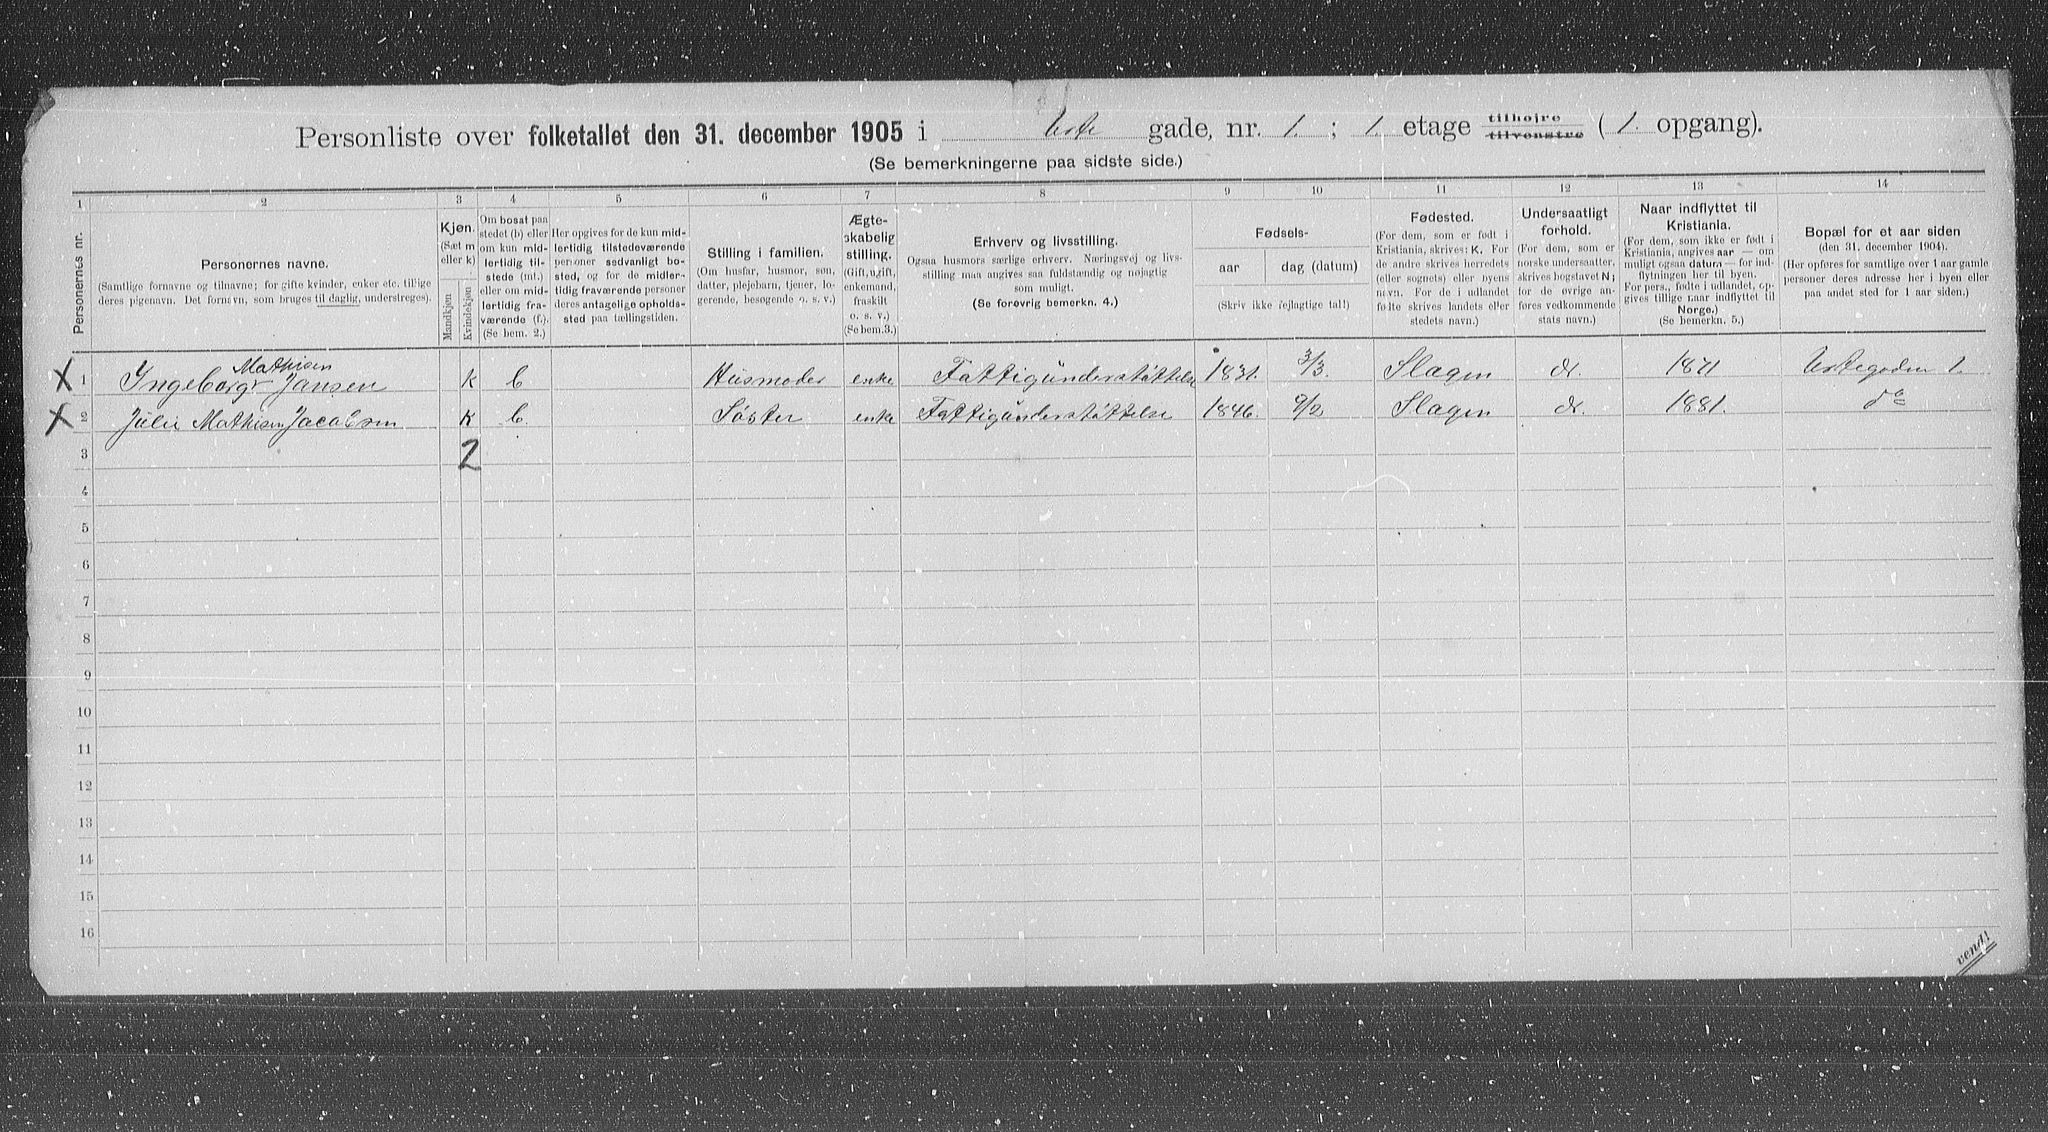 Personliste over folketallet den 31. december 1905 i Urte gade, nr. 1 ; 1 etage tilhøjre tilvenstre ( 1. opgang).
(Se bemerkningerne paa sidste side.)
1 2 3 4 5 6 7 8 9 10 11 12 13 14
Personernes nr.
Personernes navne.
(Samtlige fornavne og tilnavne; for gifte kvinder, enker etc. tillige
deres pigenavn. Det fornavn, som bruges til daglig, understreges).
Kjøn.
(Sæt m
eller k)
Mandkjøn
Kvindekjøn
Om bosat paa
stedet (b) eller
om kun mid-
lertidig til-
stede (mt.)
eller om mid-
lertidig fra-
værende (f.).
(Se bem. 2.)
Her opgives for de kun mid-
lertidig tilstedeværende
personer sedvanligt bo-
sted, og for de midler-
tidig fraværende personer
deres antagelige opholds-
sted paa tællingstiden.
Stilling i familien.
(Om husfar, husmor, søn,
datter, plejebarn, tjener, lo-
gerende, besøgende o. s. v.)
Ægte-
skabelig
stilling.
(Gift, ugift,
enkemand,
fraskilt
o. s. v.)
(Se bem.3.)
Erhverv og livsstilling.
Ogsaa husmors særlige erhverv. Næringsvej og livs-
stilling maa angives saa fuldstændig og nøjagtig
som muligt.
(Se forøvrig bemerkn. 4.)
Fødsels-
aar
dag (datum)
(Skriv ikke fejlagtige tal!)
Fødested.
(For dem, som er født i
Kristiania, skrives: K. For
de andre skrives herredets
(eller sognets) eller byens
navn. For de i udlandet
fødte skrives landets eller
stedets navn.)
Undersaatligt
forhold.
(For dem, som er
norske undersaatter,
skrives bogstavet N;
for de øvrige an-
føres vedkommende
stats navn.)
Naar indflyttet til
Kristiania.
(For dem, som ikke er født i
Kristiania, angives aar — om
muligt ogsaa datum — for ind-
flytningen her til byen.
For pers., fødte i udlandet, op-
gives tillige naar indflyttet til
Norge.)
(Se bemerkn. 5.)
Bopæl for et aar siden
(den 31. december 1904).
(Her opføres for samtlige over 1 aar gamle
personer deres adresse her i byen eller
paa andet sted for 1 aar siden.)
Mathisen
X 1 Ingeborg Jansen k b Husmoder enke Fattigunderstøttelse 1831. 3/3. Slagen n. 1871 Urtegaden 1.
X 2 Julie Mathisen Jacobsen k b Søster enke Fattigunderstøttelse 1846. 9/2 Slagen n. 1881. do
3 2
4
5
6
7
8
9
10
11
12
13
14
15
16
vend!